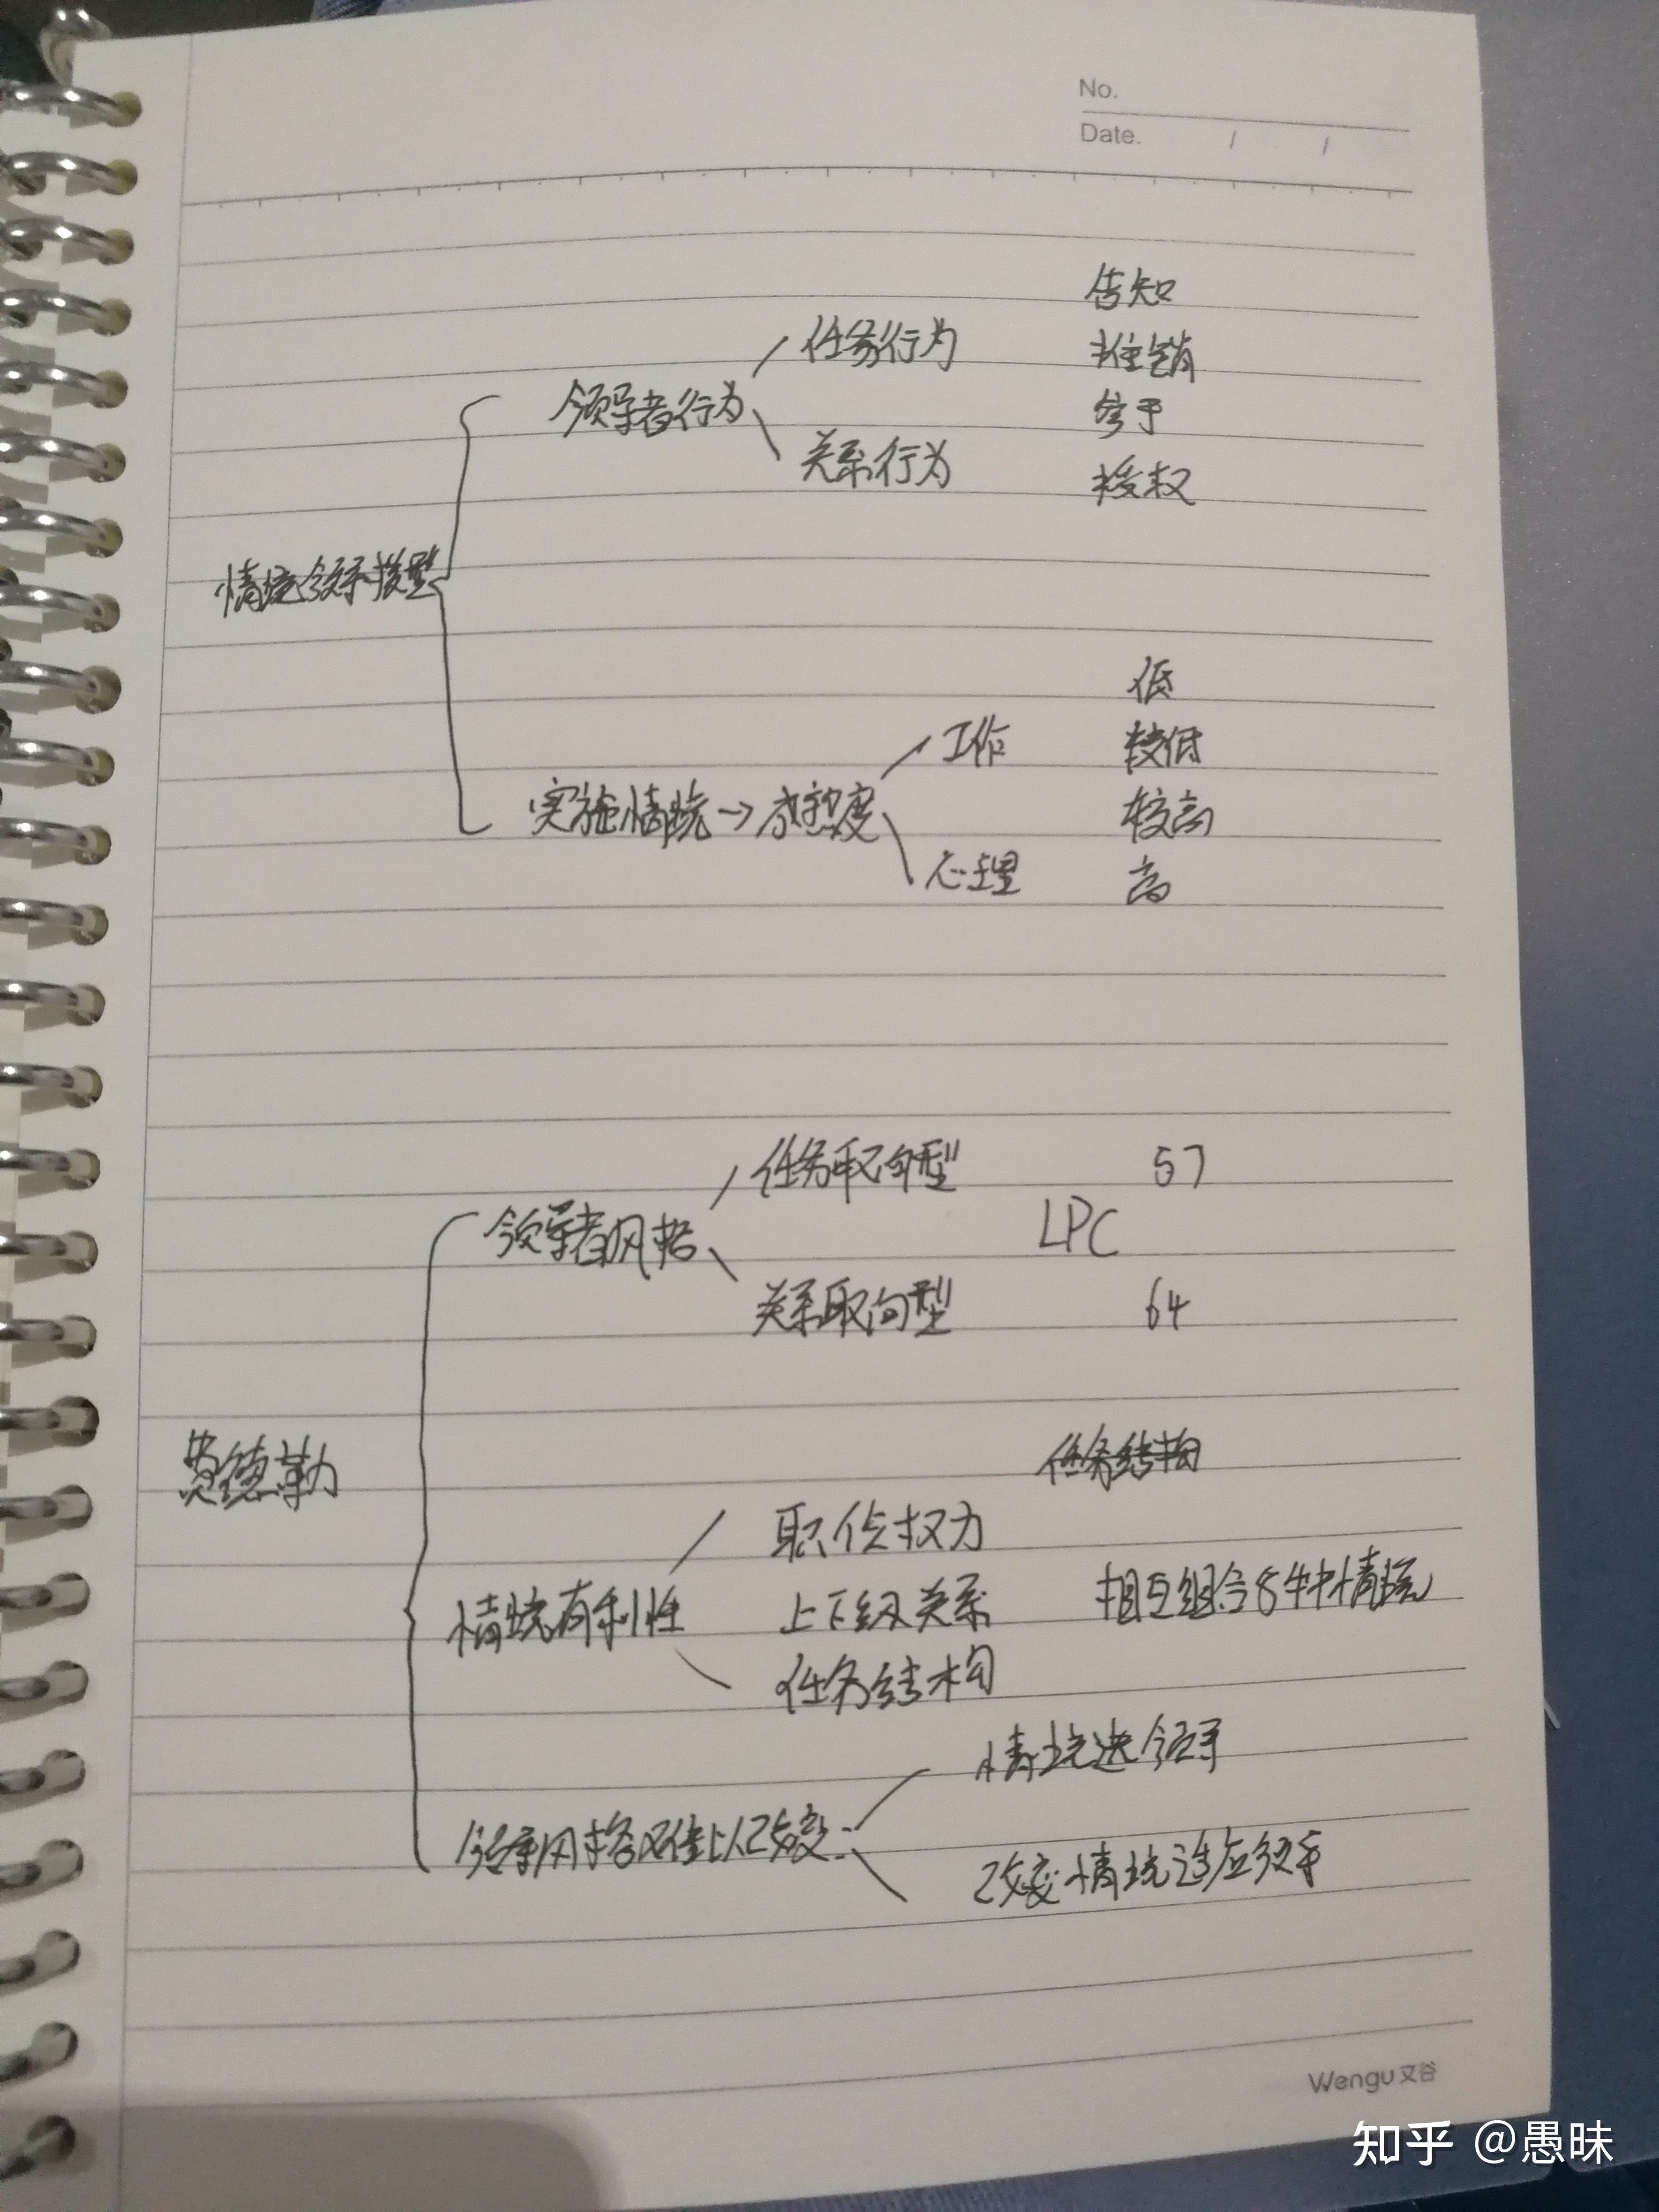 No.
Date. / /
告知
任务行为
推销
领导者行为
参于
关系行为
授权
情境领导模型
低
工作
较低
实施情境→成熟度
较高
心理
高
任务取向型 57
领导者风格
LPC
关系取向型 64
费德勒
任务结构
职位权力
情境有利性
上下级关系 相互组合8种情境
任务结构
情境选领导
领导风格难以改变
改变情境适应领导
Wengu文谷
知乎 @愚昧